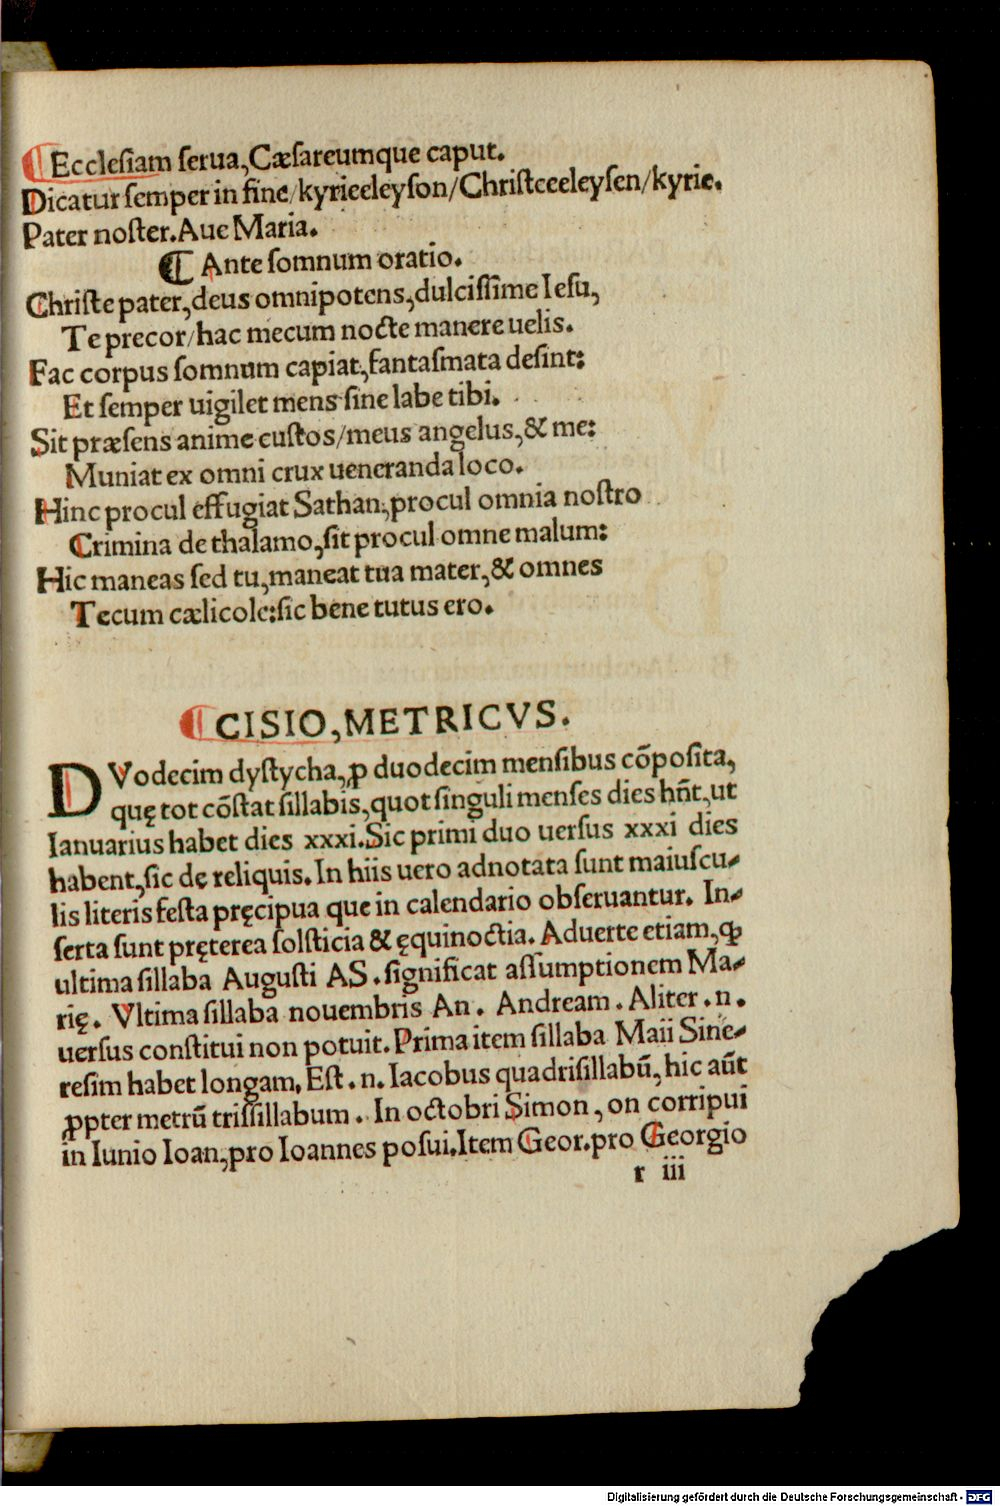 ¶ Eccleſiam ſerua, Cæſareumque caput.
Dicatur ſemper in fine/kyrieeleyſon/Chriſteeeleyſen/kyrie.
Pater noſter. Aue Maria.
¶ Ante ſomnum oratio.
Chriſte pater, deus omnipotens, dulciſſime Ieſu,
Te precor/hac mecum nocte manere uelis.
Fac corpus ſomnum capiat, fantaſmata deſint:
Et ſemper uigilet mens ſine labe tibi.
Sit præſens anime cuſtos/meus angelus, & me:
Muniat ex omni crux ueneranda loco.
Hinc procul effugiat Sathan, procul omnia noſtro
Crimina de thalamo, ſit procul omne malum:
Hic maneas ſed tu, maneat tua mater, & omnes
Tecum cælicole: ſic bene tutus ero.
¶ CISIO, METRICVS.
DVodecim dyſtycha, ꝓ duodecim menſibus cõpoſita,
quę tot cõſtat ſillabis, quot ſinguli menſes dies hñt, ut
Ianuarius habet dies xxxi. Sic primi duo uerſus xxxi dies
habent, ſic dę reliquis. In hiis uero adnotata ſunt maiuſcu-
lis literis feſta pręcipua que in calendario obſeruantur. In-
ſerta ſunt pręterea ſolſticia & ęquinoctia. Aduerte etiam, ꝙ
ultima ſillaba Auguſti AS. ſignificat aſſumptionem Ma-
rię. Vltima ſillaba nouembris An. Andream. Aliter .n.
uerſus conſtitui non potuit. Prima item ſillaba Maii Sine-
reſim habet longam. Eſt .n. Iacobus quadriſillabũ, hic aũt
ꝓpter metrũ triſſillabum. In octobri Simon, on corripui
in Iunio Ioan, pro Ioannes poſui. Item Geor. pro Georgio
r iii
Digitalisierung gefördert durch die Deutsche Forschungsgemeinschaft - DFG